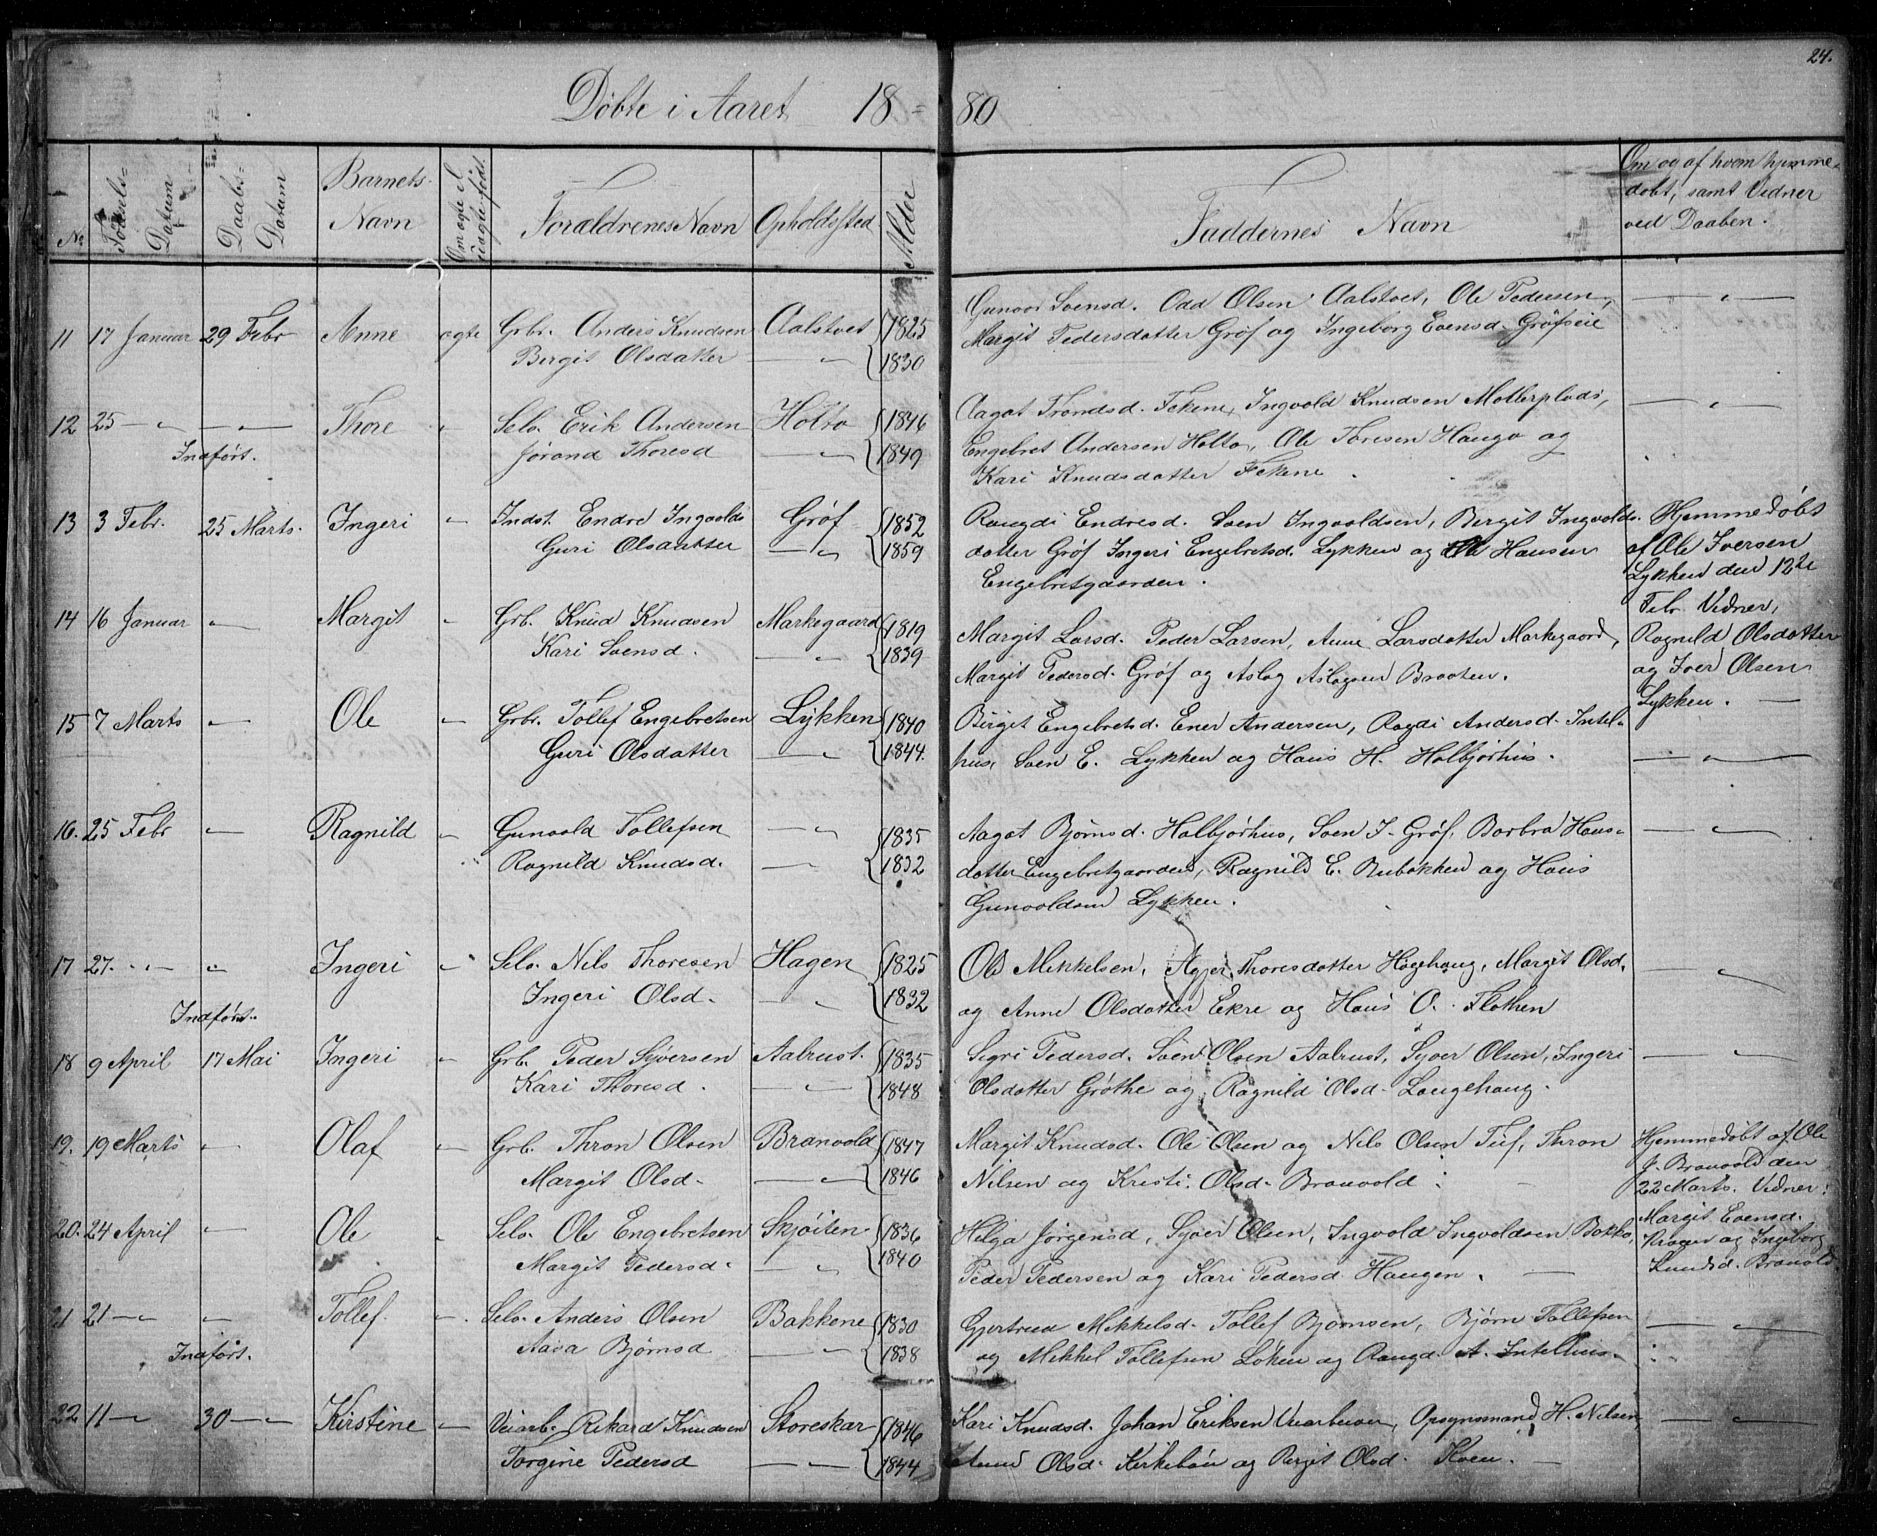 24.
Døbte i Aaret 18 = 80
No
Fødsels= Datum
Daabs= Datum
Barnets Navn
Om ægte el uægte født.
Forældrenes Navn
Opholdssted
Alder
Faddernes Navn
Om og af hvem hjemme-
døbt, samt Vidner
ved Daaben.
11 17 Januar 29 Febr Anne ægte Grbr. Anders Knudsen Aalstvet 1825
Bergit Olsdatter — " — 1830
Gunvor Svensd. Odd Olsen Aalstvet, Ole Pedersen,
Margit Pedersdatter Grøf og Ingeborg Evensd. Grøfseie
— " —
12 25 — " — " — Thore " Selv. Erik Andersen Holto 1846
Indført. Jørand Thoresd — " — 1849
Aagot Trondsd. Fekene, Ingvold Knudsen Møllerplads,
Engebret Andersen Holto, Ole Toresen Haugo og
Kari Knudsdatter Fekene.
— " —
13 3 Febr. 25 Marts. Ingeri — Indst. Endre Ingvolds Grøf 1852
Guri Olsdatter — " — 1859
Rangdi Endresd. Sven Ingvoldsen, Bergit Ingvolds-
datter Grøf Ingeri Engebretsd. Lykken og Ole Hansen
Engebretgaarden.
Hjemmedøbt
af Ole Iversen
Lykken den 12te
Febr. Vidner,
Ragnild Olsdatter
og Iver Olsen
Lykken. —
14 16 Januar " Margit " Grb. Knud Knudsen Markegaard 1819
Kari Svensd. — " — 1839
Margit Larsd. Peder Larsen, Anne Larsdatter Markegaard,
Margit Pedersd. Grøf og Aslag Aslagsen Braaten.
15 7 Marts " Ole " Grbr. Tollef Engebretsen Lykken 1840
Guri Olsdatter — " — 1844.
Birget Engebretsd. Ener Andersen, Ragdi Andersd. Intel-
hus, Sven E. Lykken og Hans H. Halbjørhus.
— " —
16. 25 Febr " Ragnild " Gunvold Tollefsen — " — 1835
Ragnild Knudsd. — " — 1832
Aagot Bjørnsd. Halbjørhus, Sven I. Grøf, Barbra Hans-
datter Engebretgaarden, Ragnild E. Rubakken og Hans
Gunvoldsen Lykken.
— " —
17 27. " — " Ingeri " Selv. Nils Thoresen Hagen 1825
Indført. Ingeri Olsd. — " — 1832
Ole Mikkelsen, Thoresdatter Høgehaug, Margit Olsd.
og Anne Olsdatter Ekre og Hans O. Flothen
— " —
18 9 April 17 Mai Ingeri " Grb. Peder Syversen Aalrust. 1835
Kari Thoresd. — " — 1848
Sigri Pedersd. Sven Olsen Aalrust, Syver Olsen, Ingeri
Olsdatter Grøthe og Ragnild Olsd. Langehaug.
— " —
19. 19 Marts " Olaf " Grb. Thron Olsen Branvold 1847
Margit Olsd. — " — 1846
Margit Knudsd. Ole Olsen og Nils Olsen Tuf, Thron
Nilsen og Kristi Olsd. Branvold
Hjemmedøbt af Ole
J. Branvold den
22 Marts. Vidner:
Margit Evensd.
og Ingeborg
Knudsd. Branvold.
20. 24 April " Ole " Selv. Ole Engebretsen Skjøiten 1836
Margit Pedersd. — " — 1840
Helga Jørgensd, Syver Olsen, Ingvold Ingvoldsen Bakko,
Peder Pedersen og Kari Pedersd. Haugen. —
21 21 — " " Tollef. " Selv. Anders Olsen Bakkene 1830
Indført. Aasa Bjørnsd — " — 1838
Gjertrud Mikkelsd. Tollef Bjørnsen, Bjørn Tollefsen
og Mikkel Tollefsen Løken og Rangd. A. Intelhus.
— " —
22 11 — " 30 — " Kirstine " Veiarb. Rikard Knudsen Storeskar 1846
Torgine Pedersd — " — 1844
Kari Knudsd. Johan Eriksen Veiarbeider, Opsynsmand H. Nilsen,
Olsd. Kirkebøn og Birgit Olsd. Kvon. —
— " —